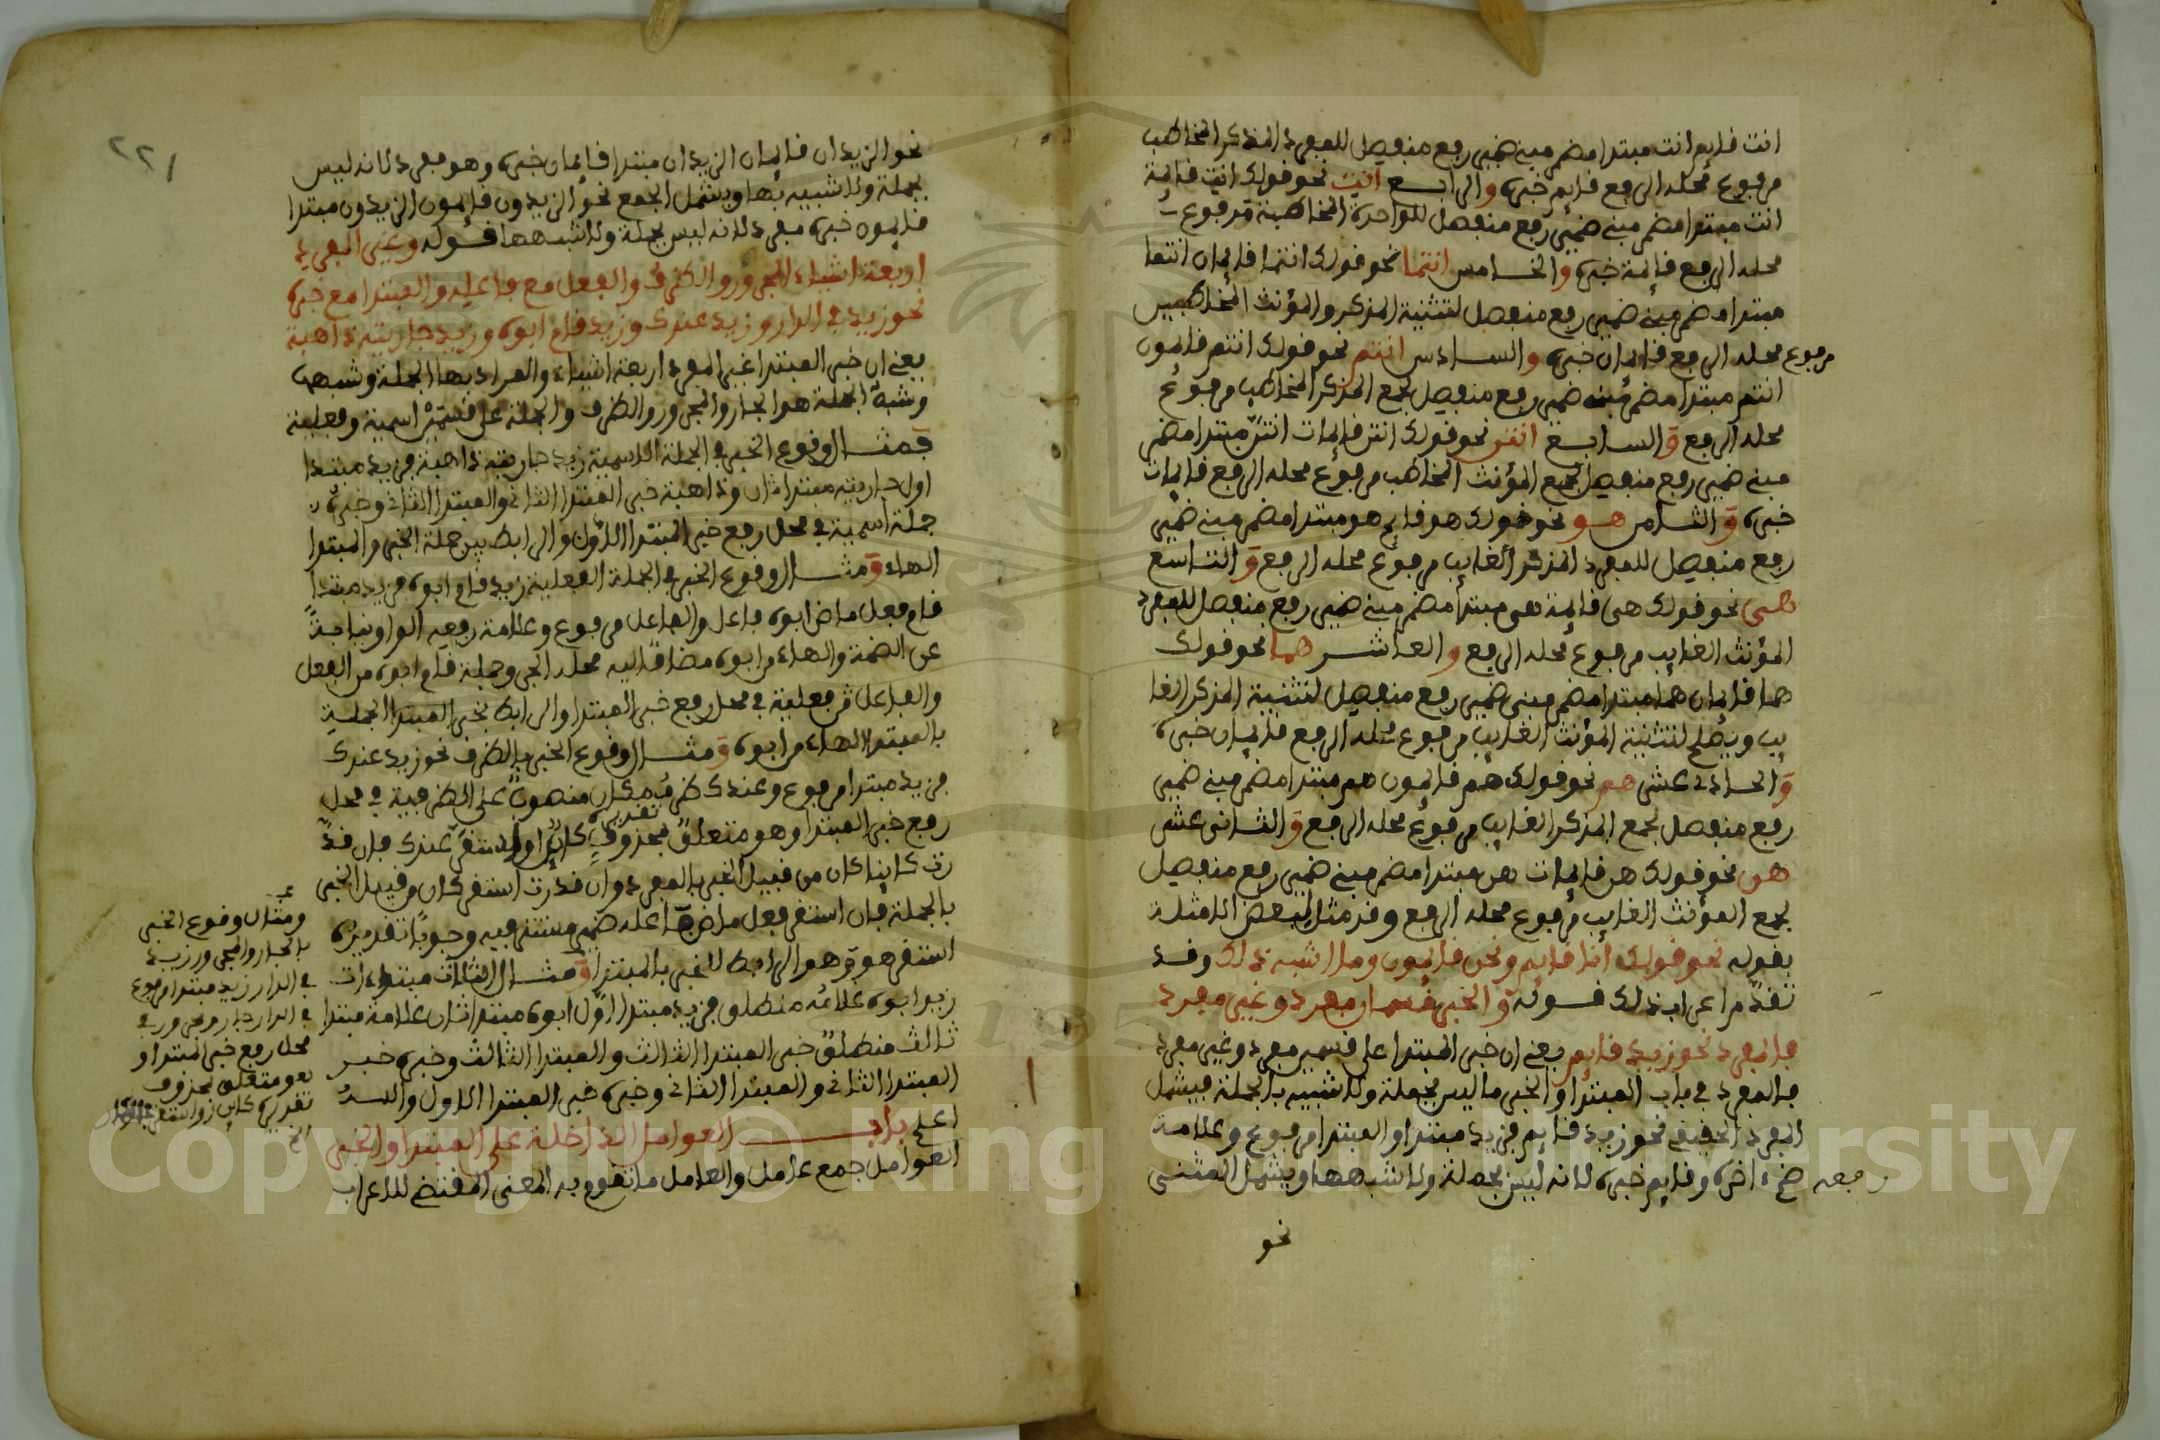 انت قايم انت مبتدا مضمر مبني ضمير رفع منفصل للمفرد المذكر المخاطب
مرفوع محله الرفع قايم خبره والرابع انت نحو قولك انت قايمة
انت مبتدا مضمر مبني ضمير رفع منفصل للواحدة المخاطبة مرفوع
محله الرفع قايمة خبره والخامس انتما نحو قولك انتما قايمان انتما
مبتدا مضمر مبني ضمير رفع منفصل لتثنية المذكر والمؤنث المخاطبين
مرفوع محله الرفع قايمان خبره والسادس انتم نحو قولك انتم قايمون
انتم مبتدا مضمر مبني ضمير رفع منفصل لجمع المذكر المخاطب مرفوع
محله الرفع والسابع انتن نحو قولك انتن قايمات انتن مبتدا مضمر
مبني ضمير رفع منفصل لجمع المؤنث المخاطب مرفوع محله الرفع قايمات
خبره والثامن هو نحو قولك هو قايم هو مبتدا مضمر مبني ضمير
رفع منفصل للمفرد المذكر الغايب مرفوع محله الرفع والتاسع
هي نحو قولك هي قايمة هي مبتدأ مضمر مبني ضمير رفع منفصل للمفرد
المؤنث الغايب مرفوع محله الرفع والعاشر هما نحو قولك
هما قايمان هما مبتدا مضمر مبني ضمير رفع منفصل لتثنية المذكر الغا
يب ويصلح لتثنية المؤنث الغايب مرفوع محله الرفع قايمان خبره
والحادي عشر هم نحو قولك هم قايمون هم مبتدا مضمر مبني ضمير
رفع منفصل لجمع المذكر الغايب مرفوع محله الرفع والثاني عشر
هن نحو قولك هن قايمات هن مبتدا مضمر مبني ضمير رفع منفصل
لجمع المؤنث الغايب مرفوع محله الرفع وقد مثل لبعض الامثلة
بقوله نحو قولك أنا قايم ونحن قايمون وما اشبه ذلك وقد
تقدم اعراب ذلك قوله والخبر قسمان مفرد وغير مفرد
فالمفرد نحو زيد قايم يعني ان خبر المبتدا على قسمين مفرد وغير مفرد
فالمفرد في باب المبتدا والخبر ما ليس بجملة ولا شبيه بالجملة فيشمل
المفرد الحقيقي نحو زيد قايم فزيد مبتدا والمبتدا مرفوع وعلامة
رفعه ضم اخره وقايم خبره لانه ليس بجملة ولا شبهها ويشمل المثنى
نحو
٢٢١
نحو الزيدان قايمان الزيدان مبتدا قايمان خبره وهو مفرد لانه ليس
بجملة ولا شبيه بها ويشمل الجمع نحو الزيدون قايمون الزيدون مبتدا
قايمون خبره مفرد لانه ليس بجملة ولا شبهها قوله وغير المفرد
اربعة اشياء المجرور والظرف والفعل مع فاعله والمبتدا مع خبره
نحو زيد في الدار وزيد عندك وزيد قام ابوه وزيد جاريته ذاهبة
يعني ان خبر المبتدا غير المفرد اربعة اشياء والمراد بها الجملة وشبهها
وشبه الجملة هو الجار والمجرور والظرف والجملة على قسمين اسمية وفعلية
فمثال وقوع الخبر في الجملة الاسمية زيد جاريته ذاهبة فزيد مبتدا
اول جاريته مبتدا ثان وذاهبة خبر المبتدا الثاني والمبتدا الثاني وخبره
جملة اسمية في محل رفع خبر المبتدا الاول والرابط بين جملة الخبر والمبتدا
الهاء ومثال وقوع الخبر في الجملة الفعلية زيد قام ابوه فزيد مبتدا
قام فعل ماض ابوه فاعل والفاعل مرفوع وعلامة رفعه الواو نيابة
عن الضمة والهاء من ابوه مضاف اليه محله الجر وجملة قام ابوه من الفعل
والفاعل فعلية في محل رفع خبر المبتدا والرابط لخبر المبتدا الجملة
بالمبتدا الهاء من ابوه ومثال وقوع الخبر بالظرف نحو زيد عندك
فزيد مبتدا مرفوع وعندك ظرف مكان منصوب على الظرفية في محل
رفع خبر المبتدا وهو متعلق بمحذوف تقديره كائن او استقر عندك فان قد
رت كاينا كان من قبيل الخبر بالمفرد وان قدرت استقر كان من قبيل الخبر
بالجملة فان استقر فعل ماض فاعله ضمير مستتر فيه وجوبا تقديره
استقر هو وهو الرابط للخبر بالمبتدا ومثال الثلاث مبتداءات
زيد ابوه غلامه منطلق فزيد مبتدا اول ابوه مبتدا ثان غلامه مبتدا
ثالث منطلق خبر المبتدا الثالث والمبتدا الثالث وخبره خبر
المبتدا الثاني والمبتدا الثاني وخبره خبر المبتدا الاول والله
اعلم باب العوامل الداخلة على المبتدا والخبر
العوامل جمع عامل والعامل ما تقوم به المعنى المقتضي للاعراب
ومثال وقوع الخبر
بالجار والمجرور زيد
في الدار زيد مبتدا مرفوع
في الدار جار ومجرور في
محل رفع خبر المبتدا و
هو متعلق بمحذوف
تقديره كاين او استقر
Copyright © King Saud University
1957